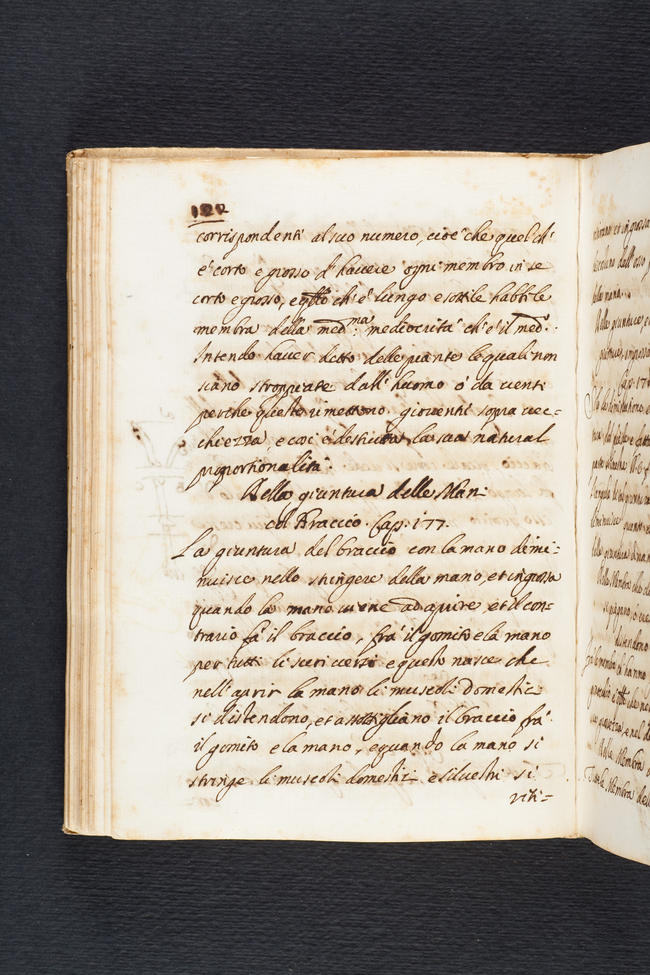 122
corrispondenti al suo numero, cioe' che quel ch'
e' corto e grosso d' havere ogni membro in se
corto e grosso, e qllo ch' e' lungo e sottile habbi le
membra della med.ma mediocrità ch' e' il med.o.
Intendo haver detto delle piante le quali non
siano stroppiate dall' huomo ò da venti
perche queste rimettono gioventù sopra vec=
chiezza, e così è destrutta la sua natural
proportionalità.
Della giuntura delle Man
col Braccio. Cap. 177.
La giuntura del braccio con la mano dimi=
nuisce nello stringere della mano, et ingrossa
quando la mano viene ad aprire, et il con=
trario fa il braccio, frà il gomito e la mano
per tutti li suoi versi e questo nasce che
nell' aprir la mano li muscoli domestici
si distendono, et assottigliano il braccio frà
il gomito e la mano, e quando la mano si
stringe li muscoli domestici e silvestri si
riti=
della mano.
Cap. 17